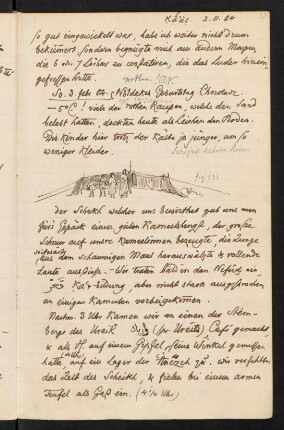 Káïs 2.II.84
so gut eingewickelt war, habe ich weiter nicht drum
bekümert, sondern begnügte mich am andern Morgen
die 6 od. 7 Löcher zu constatiren, die das Luder hinein
gefressen hatte.
So. 3. feb. 84. Nöldekes Geburtstag
–5°C! viele der rothen Raupen, welche den Sand
belebt hatten, deckten heute als Leichen den Boden.
Die Kinder hier trotz der Kälte je jünger, um so
weniger Kleider.
fig
der Schêkh welcher uns bewirthet gab uns mein
Gepäck einen guten Kameelshengst, der große
auf unsre Kameelinnen bezeugte, die Zunge
aus dem schaumigen Maul herauswälzte & rollende
Laute ausstieß. – Wir traten bald in den Nefûd ein
Ka'r-bildung, aber nicht stark ausgesprochen
an einigen Kameelen vorbeigekommen.
Nachm. 3 Uhr kamen wir an einen des
bergs des (pr. Café gemacht
x als Ḥ. auf einem Gipfel, seine Winkel gemessen
hatte, auf ein Lager der zu. wir verfehlten
das Zelt des Scheikh, & fielen bei einem armen
Teufel als Gast ein. (4 Uhr)